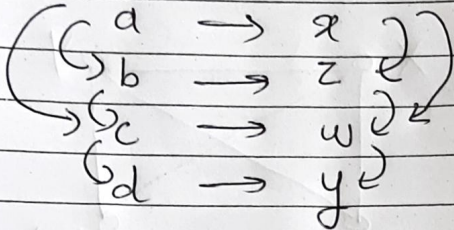 a → x
b → z
c → w
d → y